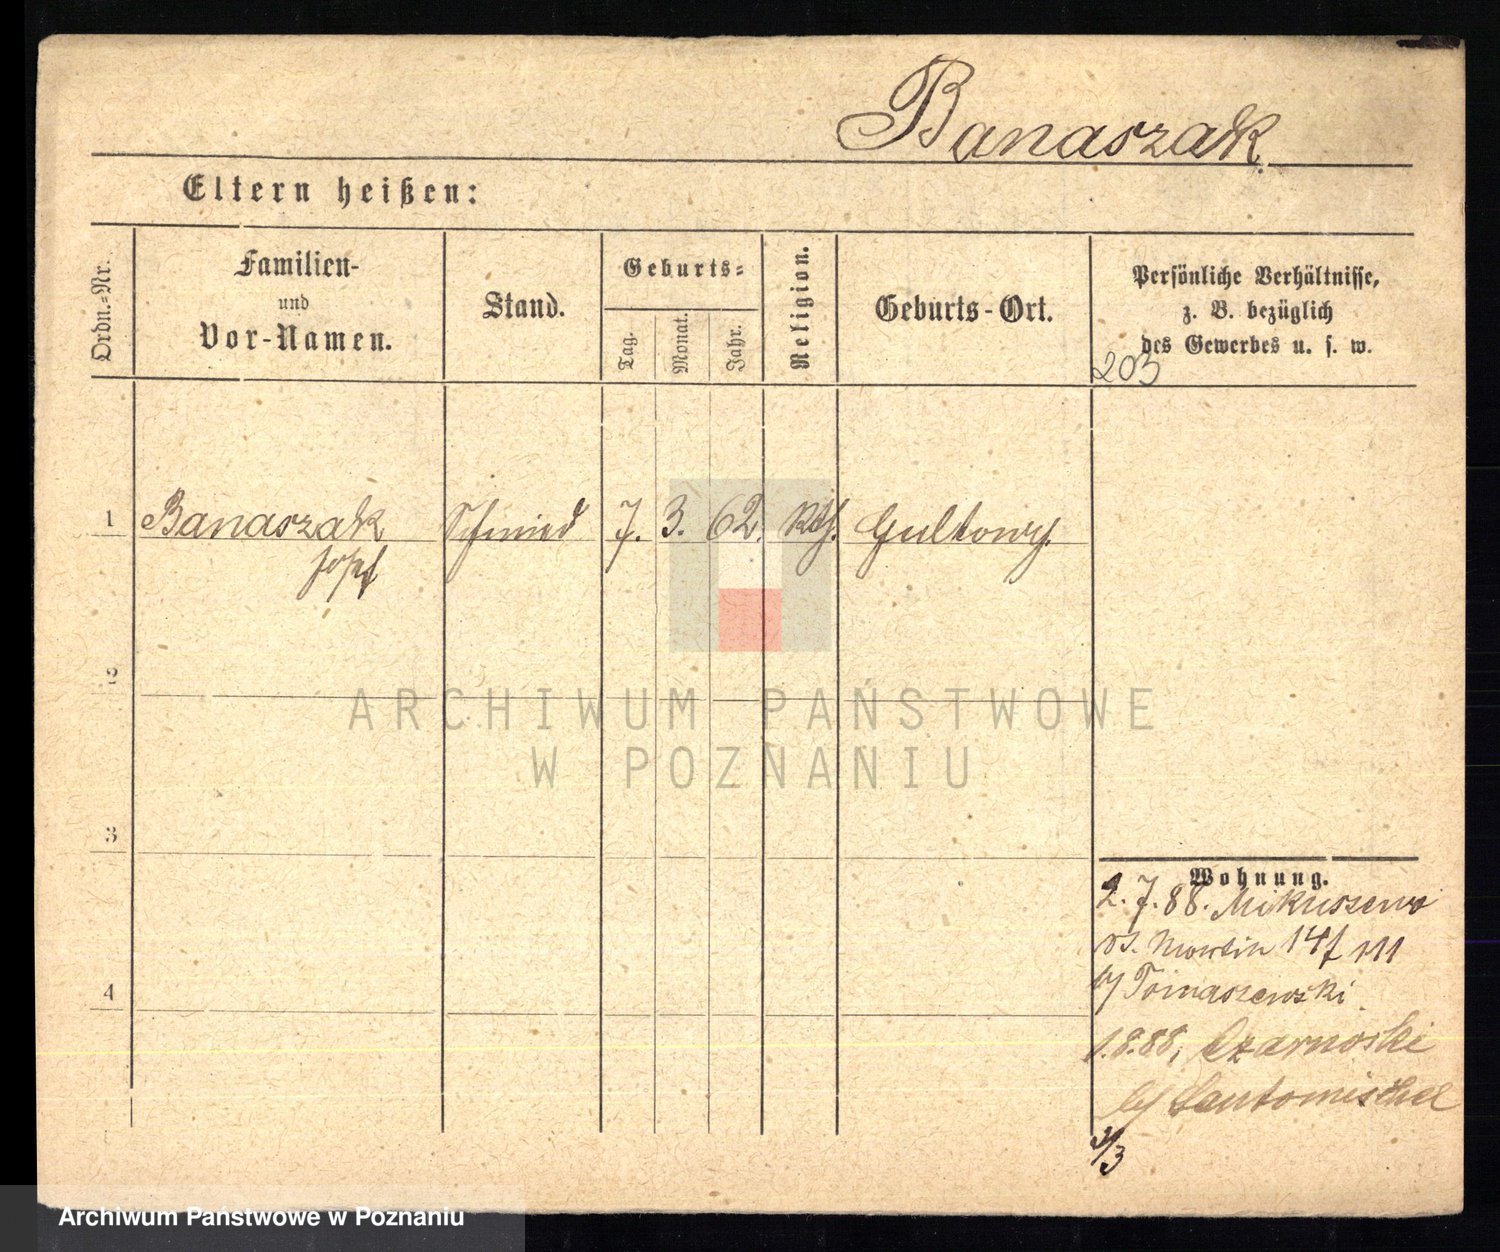 Banaszak
Eltern heißen:
Ordn.-Nr.
Familien-
und
Vor-Namen.
Stand.
Geburts-
Tag.
Monat.
Jahr.
Religion.
Geburts-Ort.
Persönliche Verhältnisse,
z. B. bezüglich
des Gewerbes u. s. w.
203
1 Banaszak Schmied 7. 3. 62. Kth. Gultowy.
Josef
2
3
4
ARCHIWUM PAŃSTWOWE
W POZNANIU
Wohnung.
2. 7. 88. Mikuszewo
St. Martin 14/III
b/ Tomaszewski
1.8.88, Czarnoski
b/ Santomischel
3/3
Archiwum Państwowe w Poznaniu